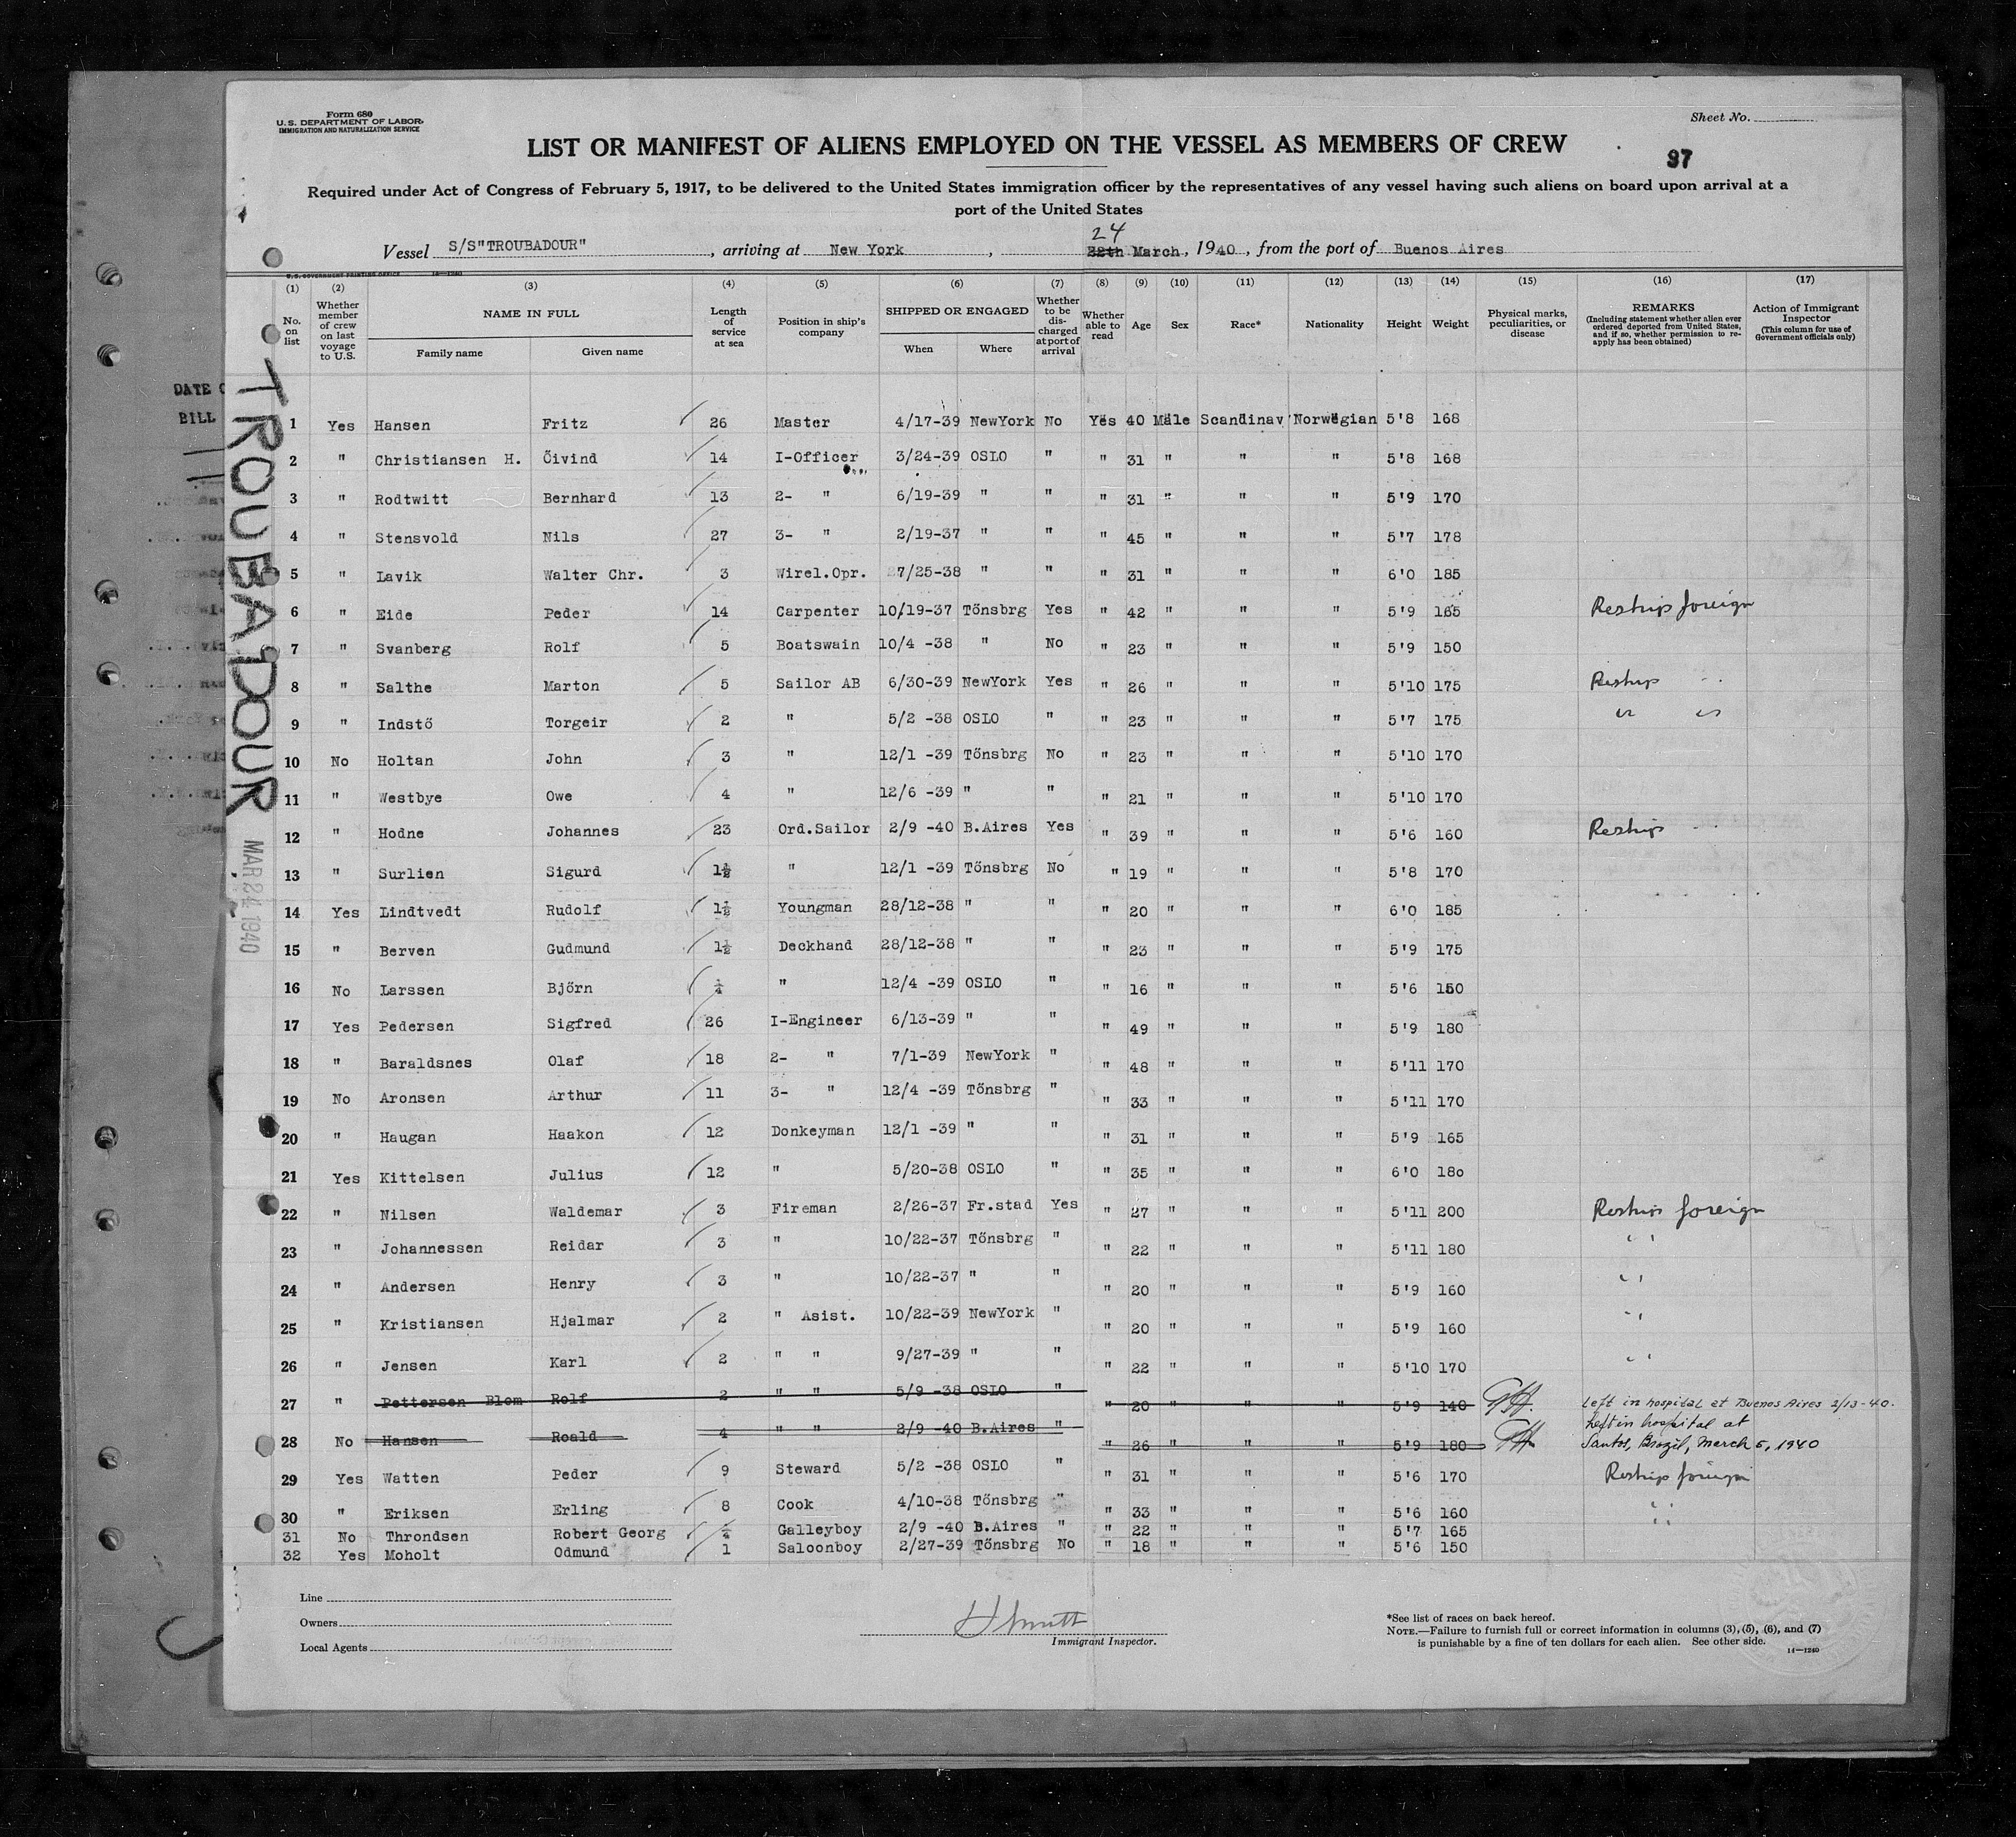 Form 680
U. S. DEPARTMENT OF LABOR
IMMIGRATION AND NATURALIZATION SERVICE
Sheet No.
LIST OR MANIFEST OF ALIENS EMPLOYED ON THE VESSEL AS MEMBERS OF CREW
37
Required under Act of Congress of February 5, 1917, to be delivered to the United States immigration officer by the representatives of any vessel having such aliens on board upon arrival at a
port of the United States
24
Vessel S/S"TROUBADOUR", arriving at New York, 22th March, 1940, from the port of Buenos Aires
U. S. GOVERNMENT PRINTING OFFICE 14—1240
(1) (2) (3) (4) (5) (6) (7) (8) (9) (10) (11) (12) (13) (14) (15) (16) (17)
No. on list
Whether member of crew on last voyage to U.S.
NAME IN FULL
Family name
Given name
Length of service at sea
Position in ship's company
SHIPPED OR ENGAGED
When
Where
Whether to be discharged at port of arrival
Whether able to read
Age
Sex
Race*
Nationality
Height
Weight
Physical marks, peculiarities, or disease
REMARKS
(Including statement whether alien ever ordered deported from United States, and if so, whether permission to re-apply has been obtained)
Action of Immigrant Inspector
(This column for use of Government officials only)
DATE
BILL
TROUBADOUR
MAR 24 1940
1 Yes Hansen Fritz 26 Master 4/17-39 NewYork No Yes 40 Male Scandinav Norwegian 5'8 168
2 " Christiansen H. Öivind 14 I-Officer 3/24-39 OSLO " " 31 " " " 5'8 168
3 " Rodtwitt Bernhard 13 2- " 6/19-39 " " " 31 " " " 5'9 170
4 " Stensvold Nils 27 3- " 2/19-37 " " " 45 " " " 5'7 178
5 " Lavik Walter Chr. 3 Wirel.Opr. 7/25-38 " " " 31 " " " 6'0 185
6 " Eide Peder 14 Carpenter 10/19-37 Tönsbrg Yes " 42 " " " 5'9 165 Reship foreign
7 " Svanberg Rolf 5 Boatswain 10/4 -38 " No " 23 " " " 5'9 150
8 " Salthe Marton 5 Sailor AB 6/30-39 NewYork Yes " 26 " " " 5'10 175 Reship "
9 " Indstö Torgeir 2 " 5/2 -38 OSLO " " 23 " " " 5'7 175 " "
10 No Holtan John 3 " 12/1 -39 Tönsbrg No " 23 " " " 5'10 170
11 " Westbye Owe 4 " 12/6 -39 " " " 21 " " " 5'10 170
12 " Hodne Johannes 23 Ord.Sailor 2/9 -40 B.Aires Yes " 39 " " " 5'6 160 Reship "
13 " Surlien Sigurd 1½ " 12/1 -39 Tönsbrg No " 19 " " " 5'8 170
14 Yes Lindtvedt Rudolf 1½ Youngman 28/12-38 " " " 20 " " " 6'0 185
15 " Berven Gudmund 1½ Deckhand 28/12-38 " " " 23 " " " 5'9 175
16 No Larssen Björn ¼ " 12/4 -39 OSLO " " 16 " " " 5'6 150
17 Yes Pedersen Sigfred 26 I-Engineer 6/13-39 " " " 49 " " " 5'9 180
18 " Baraldsnes Olaf 18 2- " 7/1-39 NewYork " " 48 " " " 5'11 170
19 No Aronsen Arthur 11 3- " 12/4 -39 Tönsbrg " " 33 " " " 5'11 170
20 " Haugan Haakon 12 Donkeyman 12/1 -39 " " " 31 " " " 5'9 165
21 Yes Kittelsen Julius 12 " 5/20-38 OSLO " " 35 " " " 6'0 180
22 " Nilsen Waldemar 3 Fireman 2/26-37 Fr.stad Yes " 27 " " " 5'11 200 Reship foreign
23 " Johannessen Reidar 3 " 10/22-37 Tönsbrg " " 22 " " " 5'11 180 " "
24 " Andersen Henry 3 " 10/22-37 " " " 20 " " " 5'9 160 " "
25 " Kristiansen Hjalmar 2 " Asist. 10/22-39 NewYork " " 20 " " " 5'9 160 " "
26 " Jensen Karl 2 " " 9/27-39 " " " 22 " " " 5'10 170 " "
27 " Pettersen Blom Rolf 2 " " 5/9 -38 OSLO " " 20 " " " 5'9 140 Left in hospital at Buenos Aires 2/13-40.
28 No Hansen Roald 4 " " 2/9 -40 B.Aires " " 26 " " " 5'9 180 Left in hospital at Santos, Brazil, March 5, 1940
29 Yes Watten Peder 9 Steward 5/2 -38 OSLO " " 31 " " " 5'6 170 Reship foreign
30 " Eriksen Erling 8 Cook 4/10-38 Tönsbrg " " 33 " " " 5'6 160 " "
31 No Throndsen Robert Georg ¼ Galleyboy 2/9 -40 B.Aires " " 22 " " " 5'7 165 " "
32 Yes Moholt Odmund 1 Saloonboy 2/27-39 Tönsbrg No " 18 " " " 5'6 150
Line
Owners
Local Agents
Immigrant Inspector.
*See list of races on back hereof.
NOTE.—Failure to furnish full or correct information in columns (3), (5), (6), and (7)
is punishable by a fine of ten dollars for each alien. See other side.
14—1240